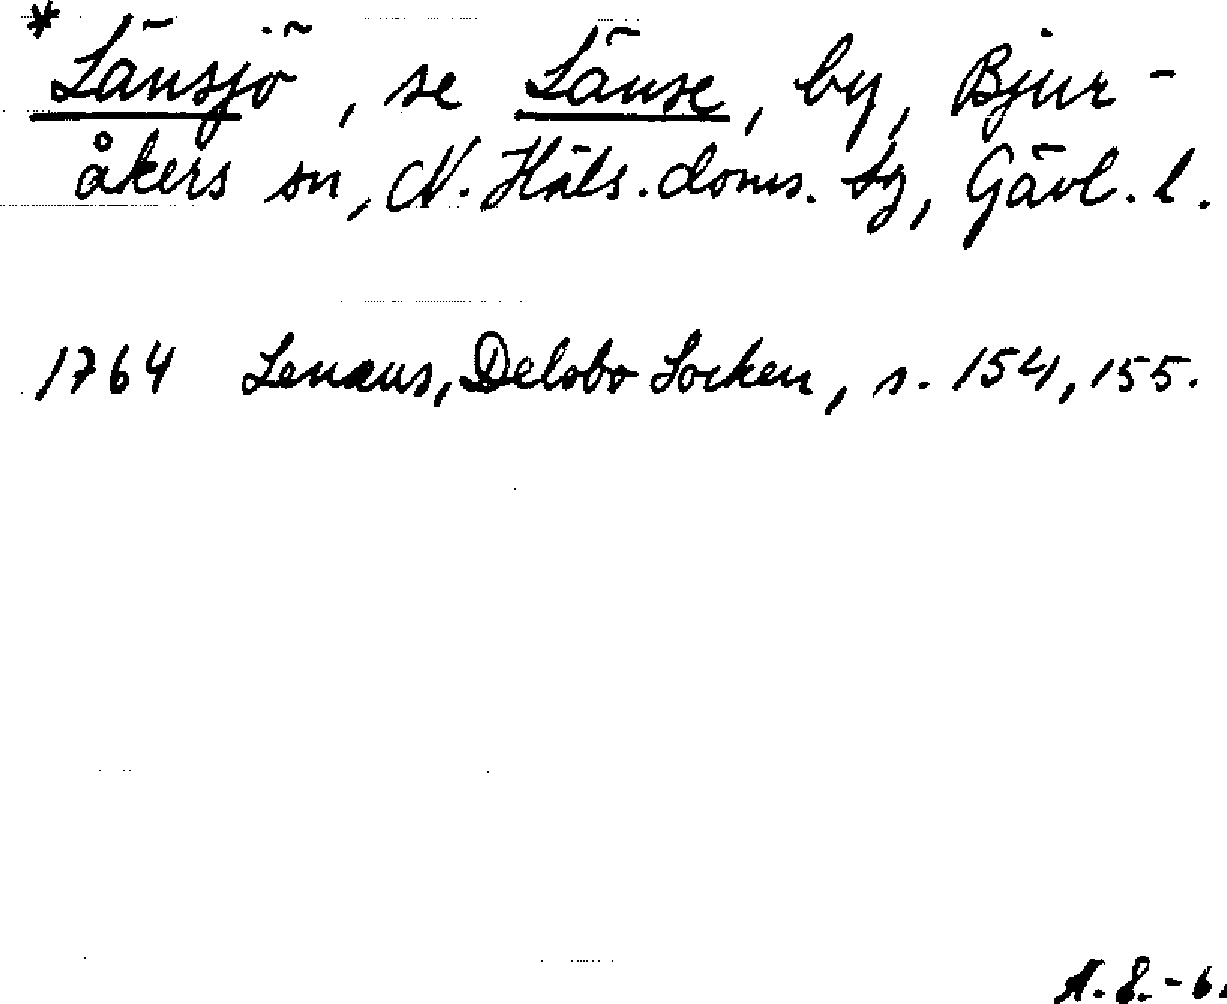 *Länsjö, se Länse, by, Bjur-
åkers sn, N. Häls. doms. tg, Gävl. l.
1764 Lenæus, Delsbo Socken, s. 154, 155.
A. E. - 6.